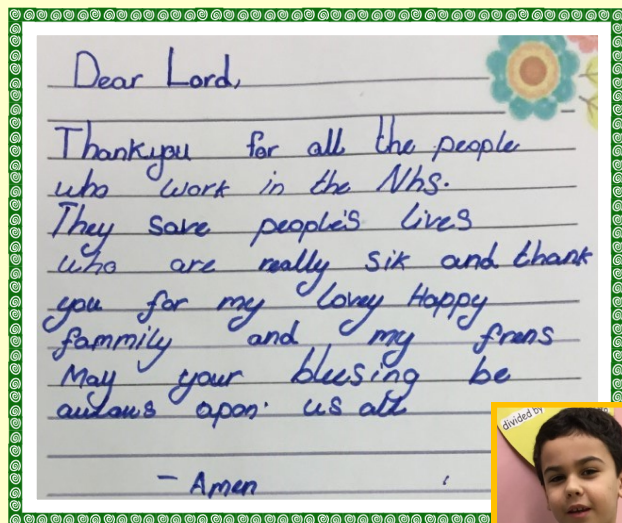 Dear Lord,
Thankyou for all the people
who work in the Nhs.
They save people's lives
who are really sik and thank
you for my lovey Happy
fammily and my frens
May your blessing be
apon us all
- Amen
divided by